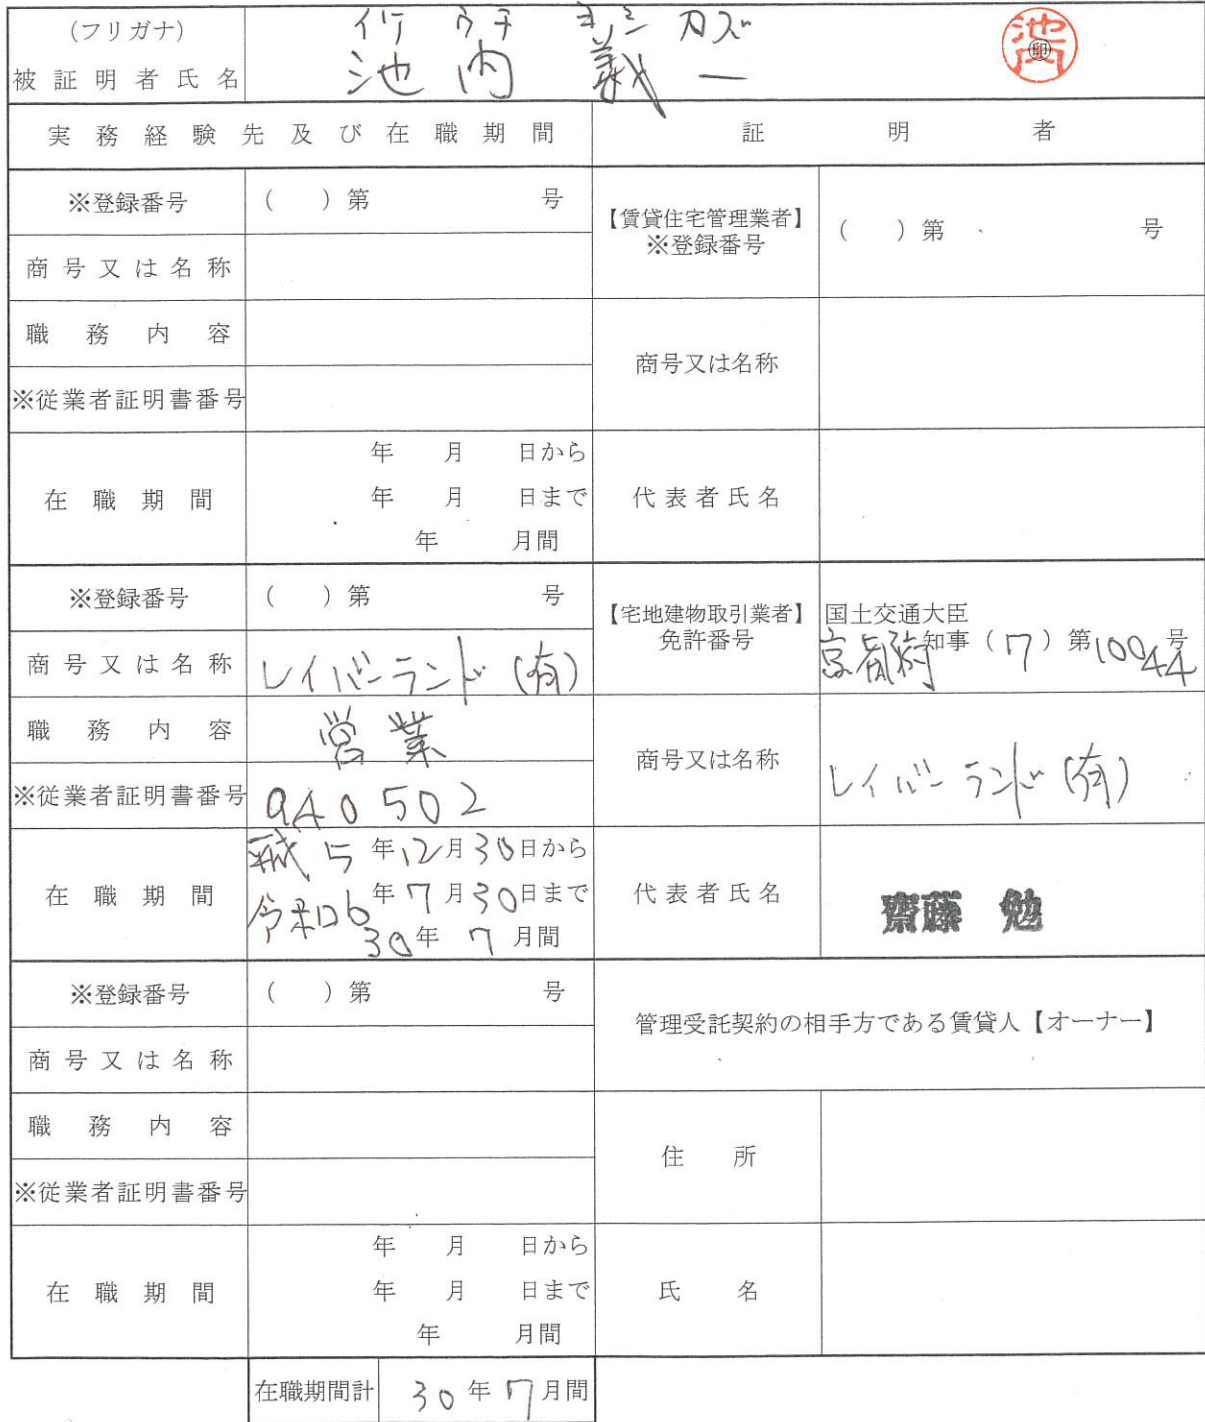 (フリガナ)
イケ ウチ ヨシ カズ
被証明者氏名
池内 義一
池内
印
実務経験先及び在職期間
証明者
※登録番号
( )第 号
【賃貸住宅管理業者】
※登録番号
( )第 号
商号又は名称
職務内容
商号又は名称
※従業者証明書番号
在職期間
年 月 日から
年 月 日まで
年 月間
代表者氏名
※登録番号
( )第 号
【宅地建物取引業者】
免許番号
国土交通大臣
京都府知事(7)第10044号
商号又は名称
レイバーランド(有)
職務内容
営業
商号又は名称
レイバーランド(有)
※従業者証明書番号
940502
在職期間
平成5年12月30日から
令和6年7月30日まで
30年7月間
代表者氏名
齋藤 勉
※登録番号
( )第 号
管理受託契約の相手方である賃貸人【オーナー】
商号又は名称
職務内容
住所
※従業者証明書番号
在職期間
年 月 日から
年 月 日まで
年 月間
氏名
在職期間計
30年7月間